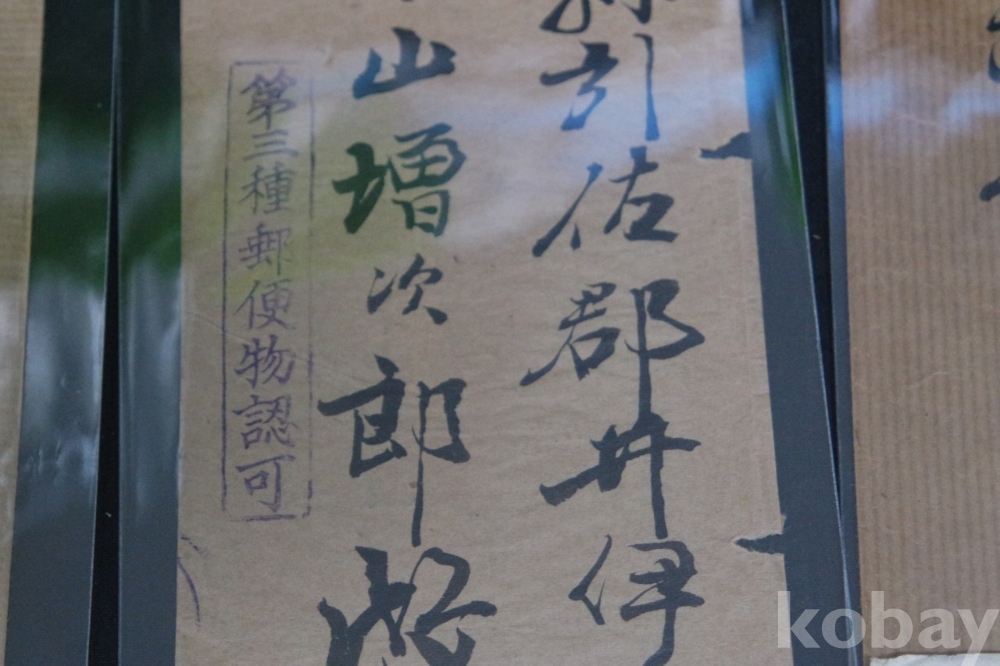 引佐郡井伊
山増次郎殿
第三種郵便物認可
kobay